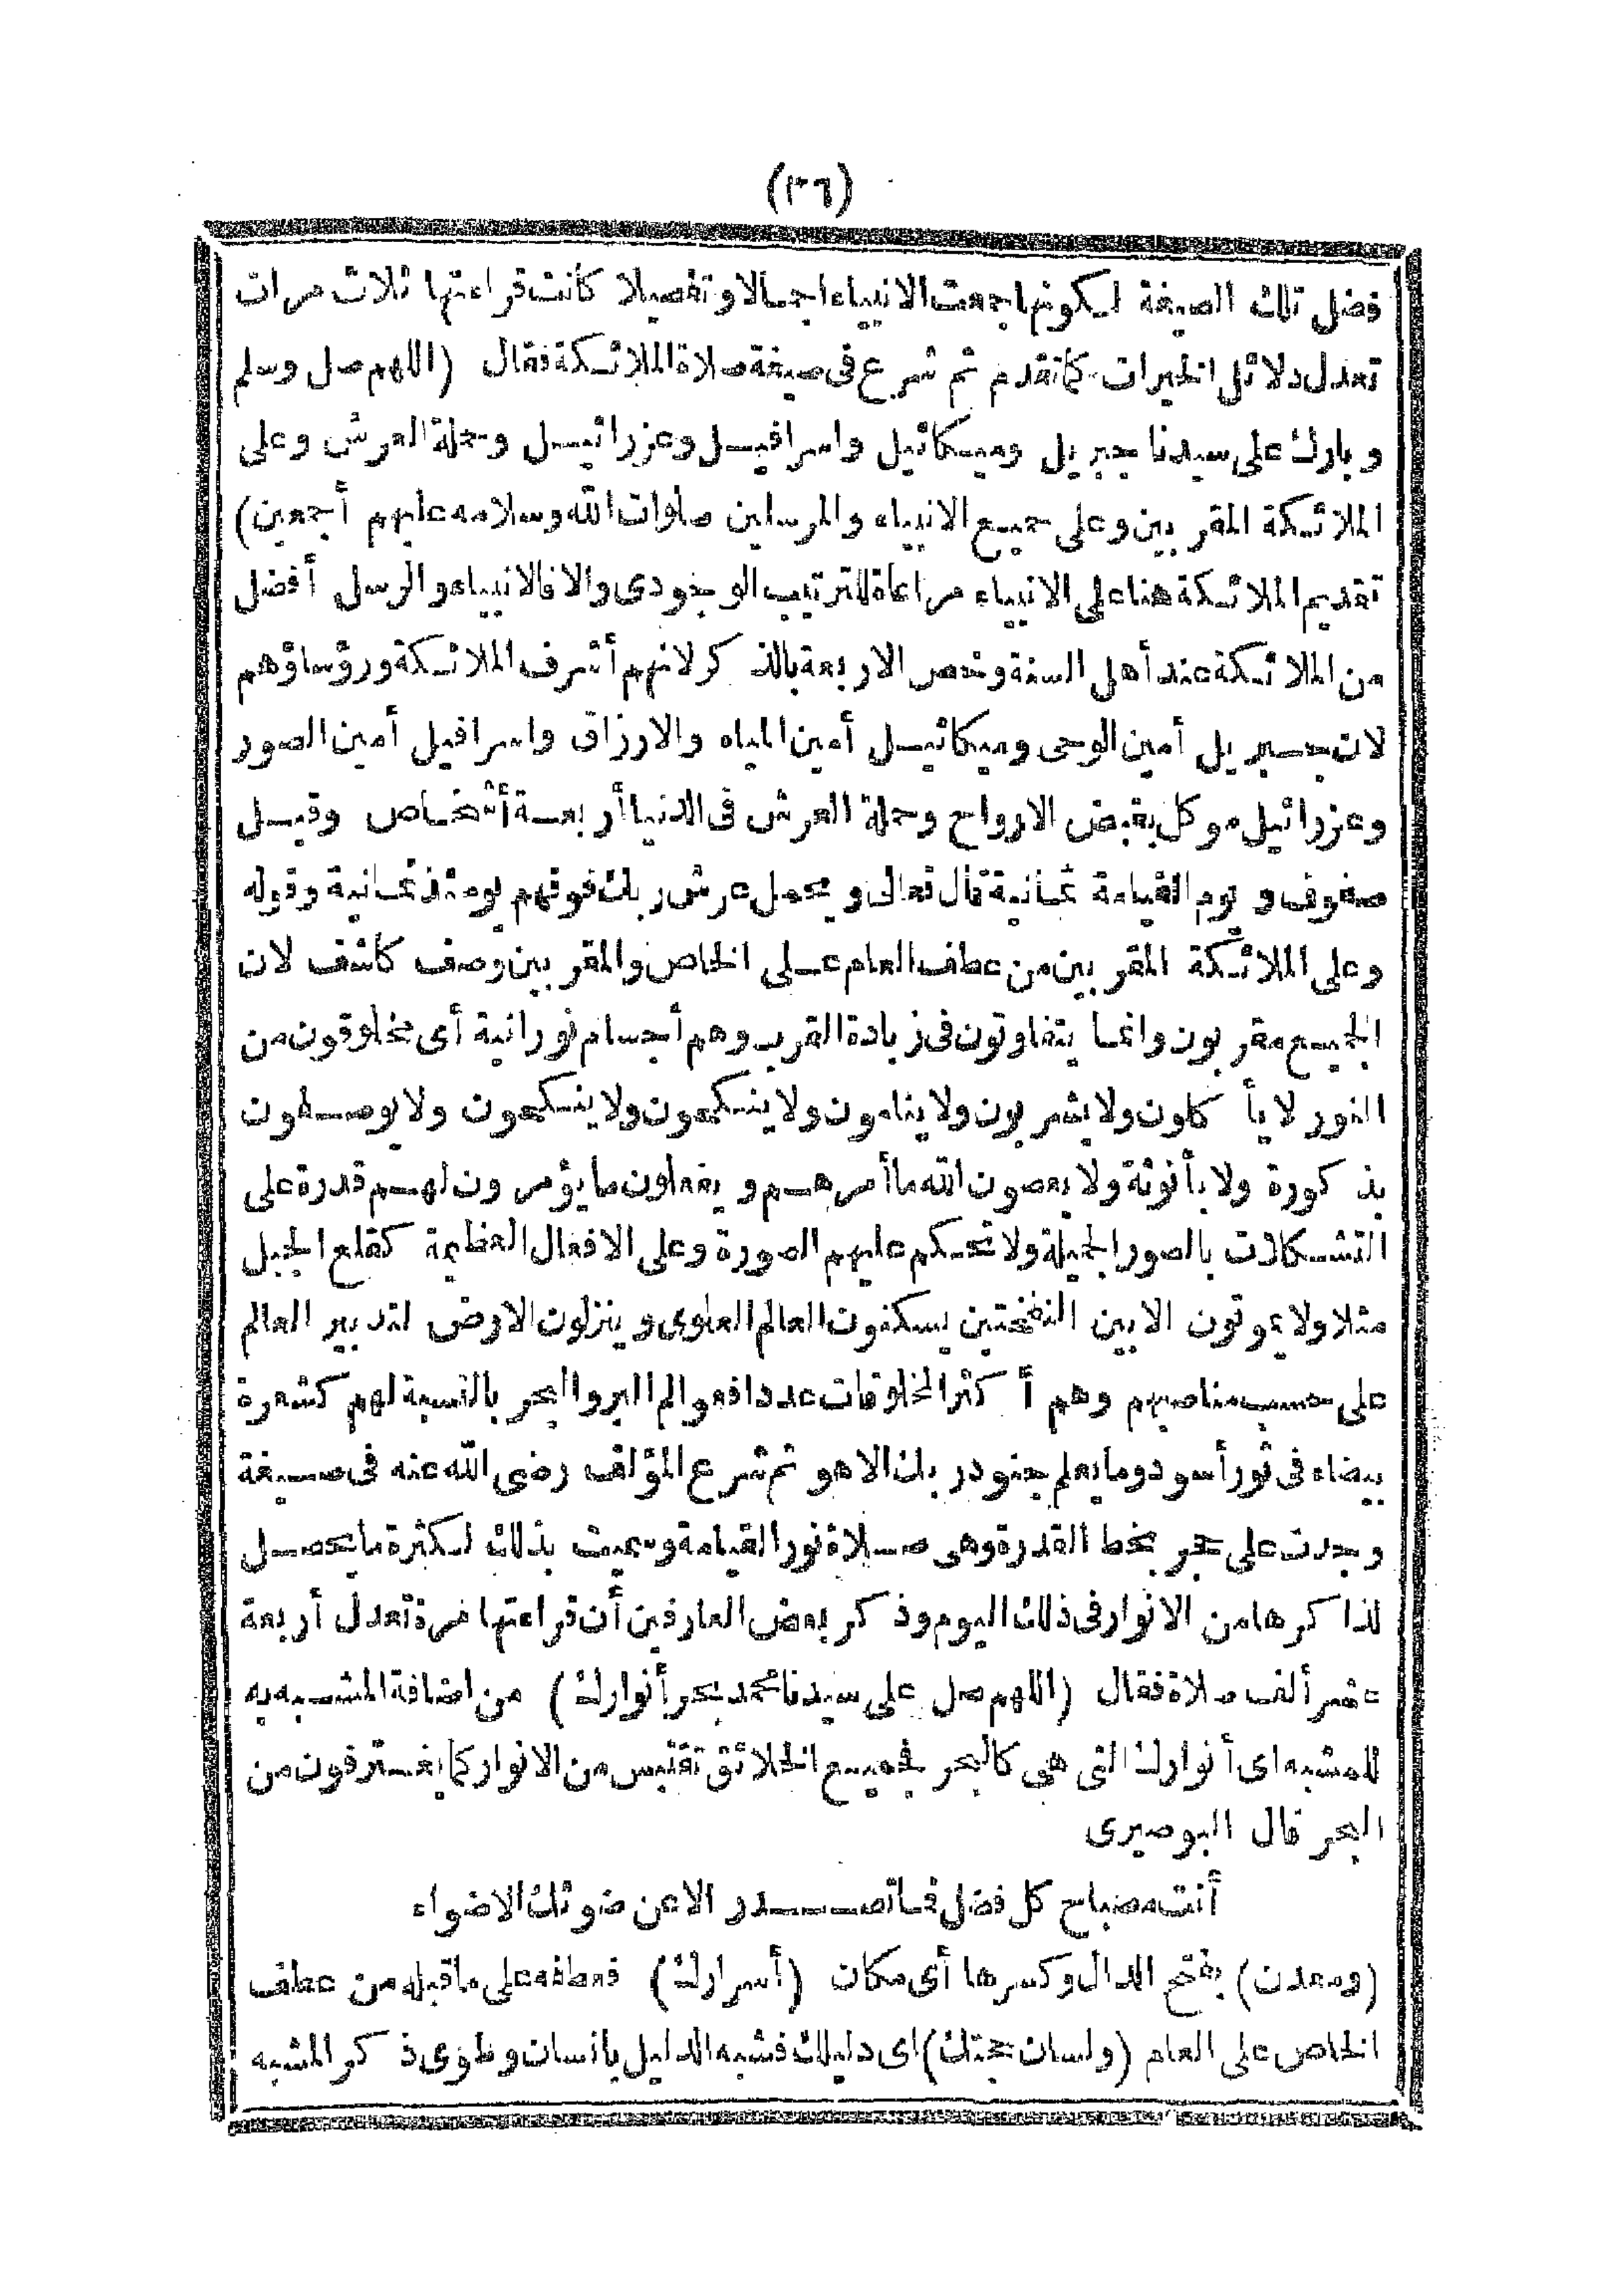 (٣٦)
فضل تلك الصيغة لكونها جمعت الانبياء اجمالا وتفصيلا كانت قراءتها ثلاث مرات
تعدل دلائل الخيرات كما تقدم ثم شرع فى صيغة صلاة الملائكة فقال (اللهم صل وسلم
وبارك على سيدنا جبريل وميكائيل واسرافيل وعزرائيل وحملة العرش وعلى
الملائكة المقربين وعلى جميع الانبياء والمرسلين صلوات الله وسلامه عليهم أجمعين)
تقديم الملائكة هنا على الانبياء مراعاة للترتيب الوجودى والا فالانبياء والرسل أفضل
من الملائكة عند أهل السنة وخص الاربعة بالذكر لانهم أشرف الملائكة ورؤساؤهم
لان جبريل أمين الوحى وميكائيل أمين المياه والارزاق واسرافيل أمين الصور
وعزرائيل موكل بقبض الارواح وحملة العرش فى الدنيا أربعة أشخاص وقيل
صفوف ويوم القيامة ثمانية قال تعالى ويحمل عرش ربك فوقهم يومئذ ثمانية وقوله
وعلى الملائكة المقربين من عطف العام على الخاص والمقربين وصف كاشف لان
الجميع مقربون وانما يتفاوتون فى زيادة القرب وهم أجسام نورانية أى مخلوقون من
النور لا يأكلون ولا يشربون ولا ينامون ولا ينكحون ولا ينكحون ولا يوصفون
بذكورة ولا بأنوثة ولا يعصون الله ما أمرهم ويفعلون ما يؤمرون لهم قدرة على
التشكلات بالصور الجميلة ولا تحكم عليهم الصورة وعلى الافعال العظيمة كقلع الجبل
مثلا ولا يموتون الا بين النفختين يسكنون العالم العلوى وينزلون الارض لتدبير العالم
على حسب مناصبهم وهم أكثر المخلوقات عددا فعوالم البر والبحر بالنسبة لهم كشعرة
بيضاء فى ثور أسود وما يعلم جنود ربك الا هو ثم شرع المؤلف رضى الله عنه فى صيغة
وجدت على حجر بخط القدرة وهى صلاة نور القيامة وسميت بذلك لكثرة ما يحصل
لذاكرها من الانوار فى ذلك اليوم وذكر بعض العارفين أن قراءتها مرة تعدل أربعة
عشر ألف صلاة فقال (اللهم صل على سيدنا محمد بحر أنوارك) من اضافة المشبه به
للمشبه اى أنوارك التى هى كالبحر فجميع الخلائق تقتبس من الانوار كما يغترفون من
البحر قال البوصيرى
أنت مصباح كل فضل فما تصـدر الا عن ضوئك الاضواء
(ومعدن) بفتح الدال وكسرها أى مكان (أسرارك) فعطفه على ما قبله من عطف
الخاص على العام (ولسان حجتك) اى دليلك فشبه الدليل بانسان وطوى ذكر المشبه